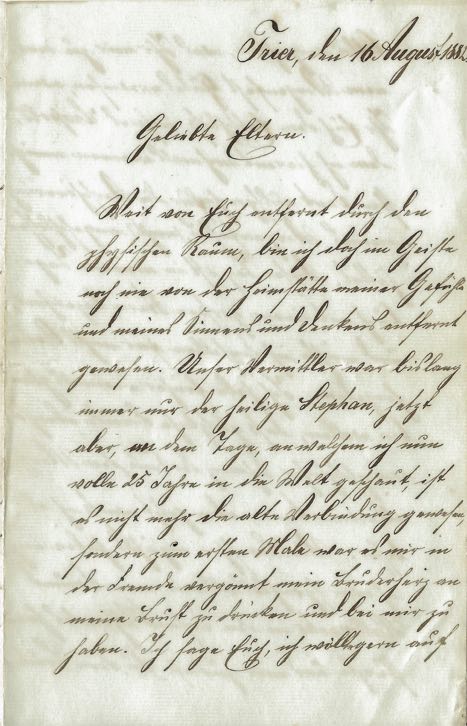 Trier, den 16 August 188
Geliebte Eltern.
Weit von Euch entfernt durch den
physischen Raum, bin ich doch im Geiste
noch nie von der Heimstätte meiner Gefühle
und meines Sinnens und Denkens entfernt
gewesen. Unser Vermittler war bislang
immer nur der heilige Stephan, jetzt
aber, an dem Tage, an welchem ich nun
volle 25 Jahre in die Welt geschaut, ist
es nicht mehr die alte Verbindung gewesen,
sondern zum ersten Male war es mir in
der Fremde vergönnt mein Bruderherz an
meine Brust zu drücken und bei mir zu
haben. Ich sage Euch, ich wollte gern auf